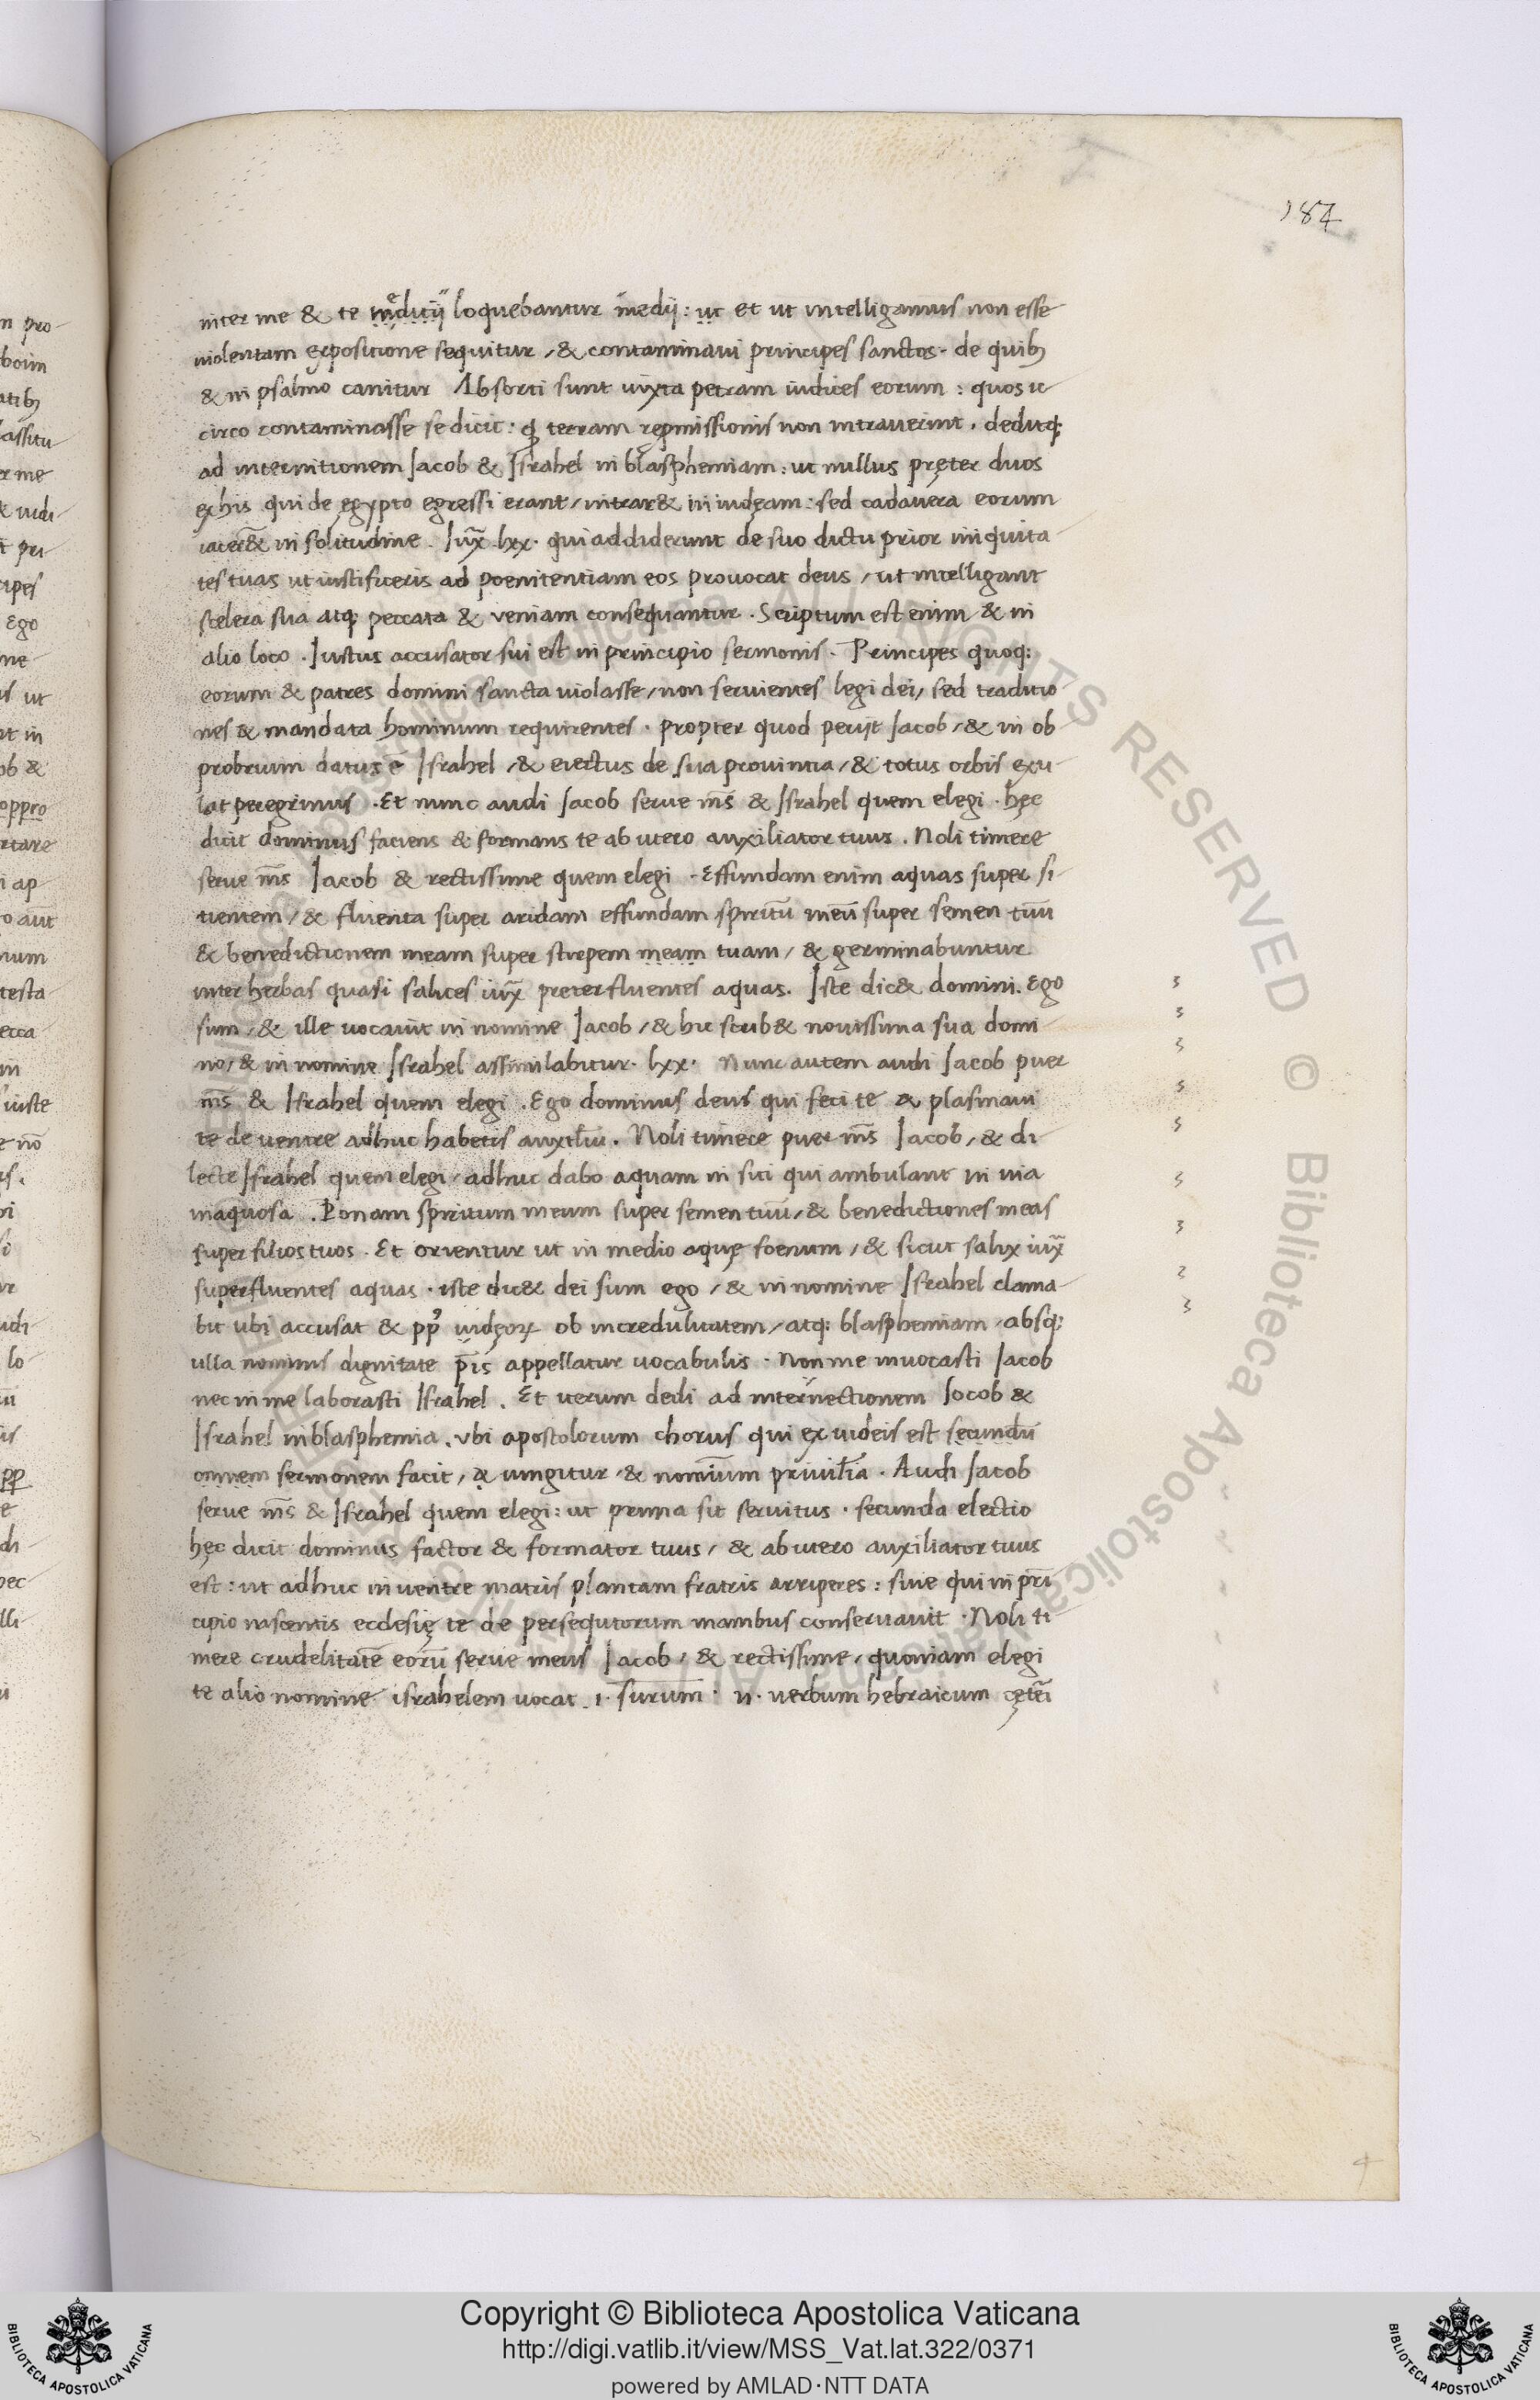 184
inter me & te mẹditij loquebantur medij : ut et ut intelligamus non esse
uiolentam expositione sequitur / & contaminaui principes sanctos . de quib3
& in psalmo canitur Absorti sunt iuxta petram iudices eorum : quos ic
circo contaminasse se dicit : terram repmissionis non intrauerint . deditq;
ad internitionem Jacob & Jsrahel in blasphemiam : ut nullus pręter duos
ex his qui de ęgypto egressi erant / intrar& in iudęam : sed cadauera eorum
iacer& in solitudine . Iux̄ lxx . qui addiderunt de suo dictu prior iniquita
tes tuas ut iustificeris ad poenitentiam eos prouocat deus / ut intelligant
scelera sua atq; peccata & veniam consequantur . Scriptum est enim & in
alio loco . Justus accusator sui est in principio sermonis . Principes quoq;
eorum & patres domini sancta uiolasse / non seruientes legi dei / sed traditio
nes & mandata hominum requirentes . propter quod perijt Jacob / & in ob
probrium datus ē Jsrahel / & eiectus de sua prouintia / & totus orbis exu
lat peregrinus . Et nunc audi Jacob serue m̄s & Jsrahel quem elegi . hęc
dicit dominus faciens & formans te ab utero auxiliator tuus . Noli timere
serue m̄s Jacob & rectissime quem elegi . Effundam enim aquas super si
tientem / & fluenta super aridam effundam spiritū meū super semen tuū
& benedictionem meam super stirpem meam tuam / & germinabuntur
inter herbas quasi salices iux̄ preterfluentes aquas . Jste dic& domini . Ego
sum / & ille uocauit in nomine Jacob / & hic scrib& nouissima sua domi
no / & in nomine Jsrahel assimilabitur . lxx . Nunc autem audi Jacob puer
m̄s & Jsrahel quem elegi . Ego dominus deus qui feci te & plasmaui
te de uentre adhuc habetis auxiliū . Noli timere puer m̄s Jacob / & di
lecte Jsrahel quem elegi / adhuc dabo aquam in siti qui ambulant in uia
inaquosa . Ponam spiritum meum super semen tuū / & benedictiones meas
super filios tuos . Et orientur ut in medio aquę foenum / & sicut salix iux̄
superfluentes aquas . iste dic& dei sum ego / & in nomine Jsrahel clama
bit ubi accusat & iudęoꝝ ob incredulitatem / atq; blasphemiam / absq;
ulla nominis dignitate appellatur uocabulis . Non me inuocasti Jacob
nec in me laborasti Jsrahel . Et uerum dedi ad internectionem Jocob &
Jsrahel in blasphemia . vbi apostolorum chorus qui ex iudeis est secundū
omnem sermonem facit / & iungitur / & nominum . Audi Jacob
serue m̄s & Jsrahel quem elegi : ut prima sit seruitus . secunda electio
hęc dicit dominus factor & formator tuus / & ab utero auxiliator tuus
est : ut adhuc in uentre matris plantam fratris arriperes : siue qui in pri
cipio nascentis ecclesię te de persequtorum manibus conseruauit . Noli ti
mere crudelitatē eorū serue meus Jacob / & rectissime / quoniam elegi
te alio nomine israhelem uocat . i . surum . n . uerbum hebraicum cęteri
Copyright © Biblioteca Apostolica Vaticana
http://digi.vatlib.it/view/MSS_Vat.lat.322/0371
powered by AMLAD·NTT DATA